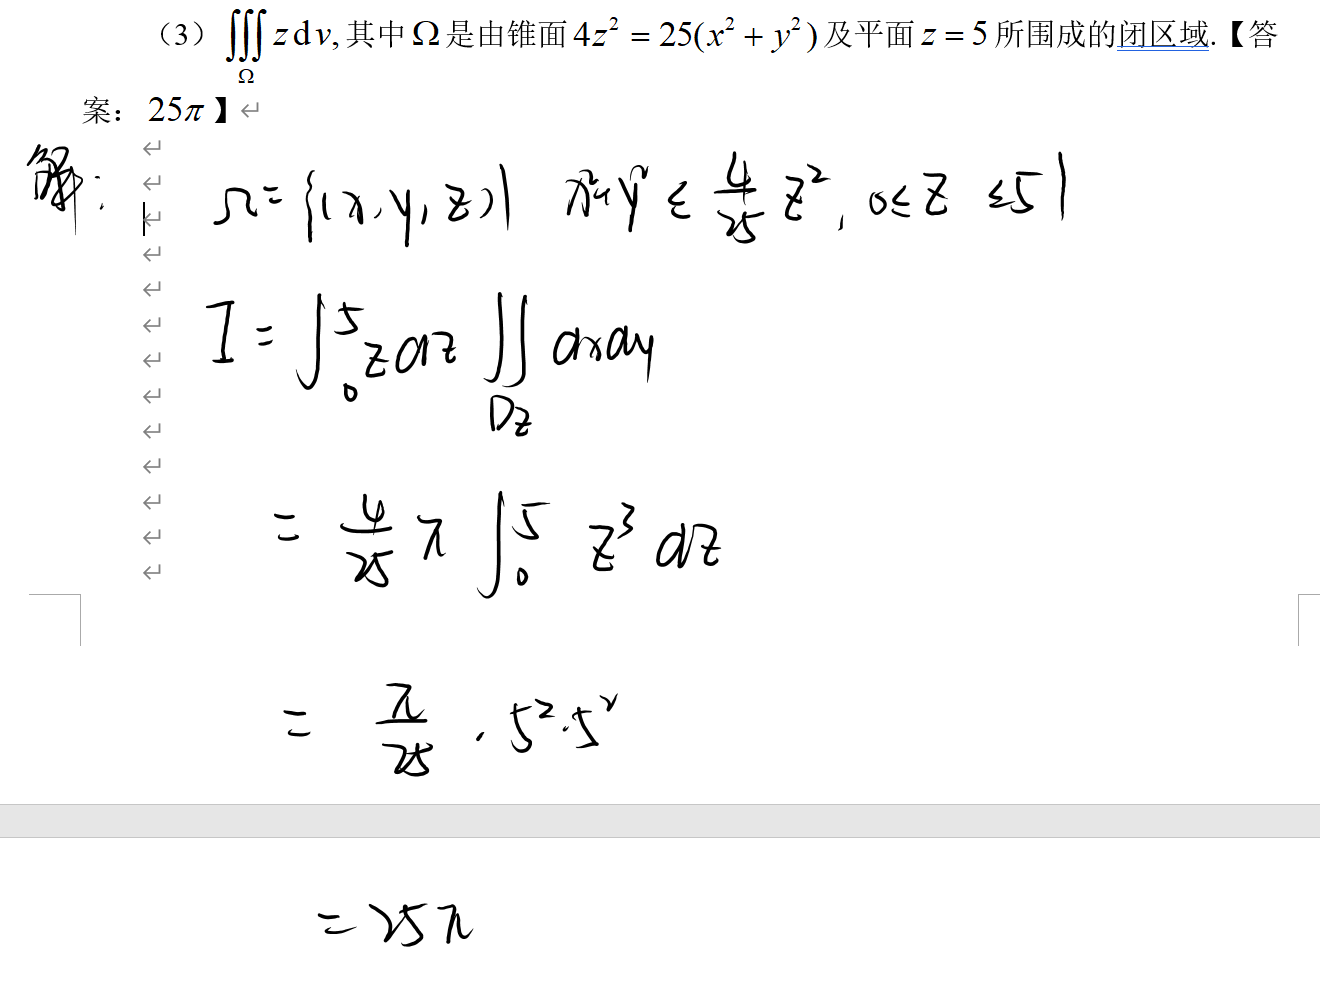 （3）∭_Ω z dv, 其中 Ω 是由锥面 4z² = 25(x² + y²) 及平面 z = 5 所围成的闭区域.【答
案： 25π 】
解: Ω = {(x, y, z) | x²+y² ≤ 4/25 z², 0≤ z ≤5 |
I = ∫₀⁵ z dz ∬_Dz dxdy
= 4/25 π ∫₀⁵ z³ dz
= π/25 · 5²·5²
= 25π